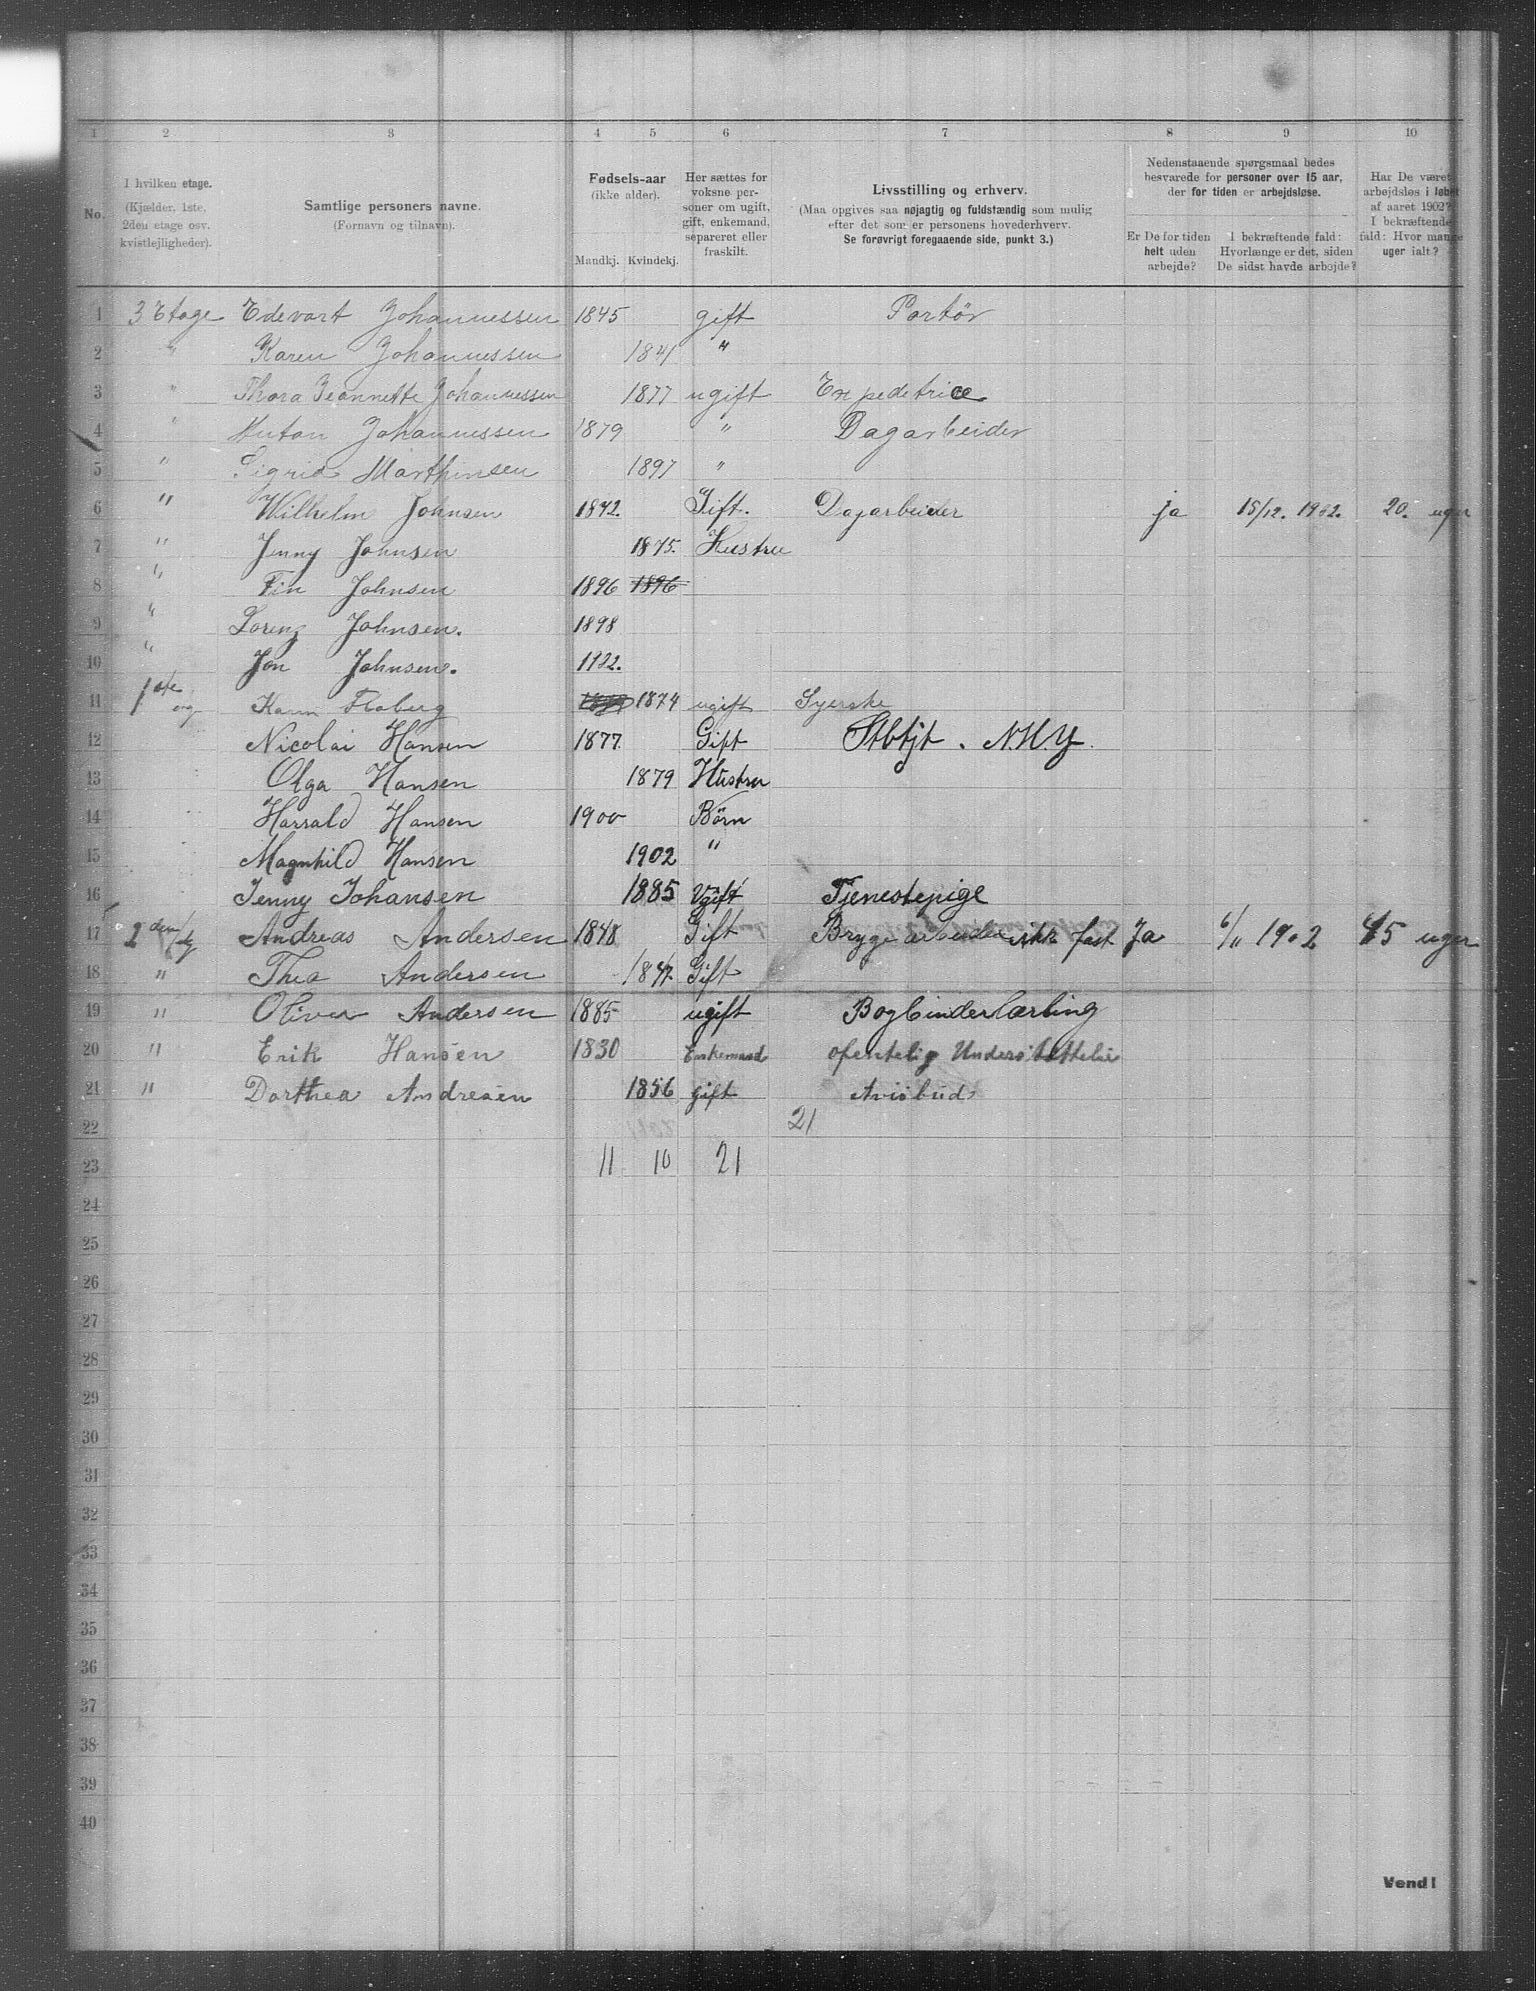 1 2 3 4 5 6 7 8 9 10
No.
I hvilken etage.
(Kjælder, 1ste,
2den etage osv.
kvistlejligheder).
Samtlige personers navne.
(Fornavn og tilnavn).
Fødsels-aar
(ikke alder).
Mandkj. Kvindekj.
Her sættes for
voksne per-
soner om ugift,
gift, enkemand,
separeret eller
fraskilt.
Livsstilling og erhverv.
(Maa opgives saa nøjagtig og fuldstændig som mulig
efter det som er personens hovederhverv.
Se forøvrigt foregaaende side, punkt 3.)
Nedenstaaende spørgsmaal bedes
besvarede for personer over 15 aar,
der for tiden er arbejdsløse.
Er De for tiden
helt uden
arbejde?
I bekræftende fald:
Hvorlænge er det, siden
De sidst havde arbejde?
Har De været
arbejdsløs i løbet
af aaret 1902?
I bekræftende
fald: Hvor mange
uger ialt?
1 3 Etage Edevart Johannessen 1845 gift Portör
2 " Karen Johannessen 1841 "
3 " Thora Jeannette Johannessen 1877 ugift Expeditrice
4 " Anton Johannessen 1879 " Dagarbeider
5 " Sigrid Marthinsen 1897 "
6 " Wilhelm Johnsen 1872. Gift. Dagarbeider ja 15/12. 1902. 20. uger
7 " Jenny Johnsen 1875. Hustru
8 " Fin Johnsen 1896 1896
9 " Lorenz Johnsen. 1898
10 " Jon Johnsen. 1902.
11 1ste Karen Floberg 1874 ugift Syerske
12 Nicolai Hansen 1877 Gift Stbtjt. N.H.Y.
13 Olga Hansen 1879 Hustru
14 Harrald Hansen 1900 Børn
15 Magnhild Hansen 1902 "
16 Jenny Johansen 1885 Ugift Tjenestepige
17 2den Andreas Andersen 1848 Gift Bryggearbeider ikke fast Ja 6/11 1902 45 uger
18 " Thea Andersen Gift
19 " Oliver Andersen 1885 ugift Bogbinderlærling
20 " Erik Hansen 1830 Enkemand ofentelig Understøttelse
21 " Dorthea Andresen 1856 gift Avisbud
22 21
23 11 10 21
24
25
26
27
28
29
30
31
32
33
34
35
36
37
38
39
40
Vend!